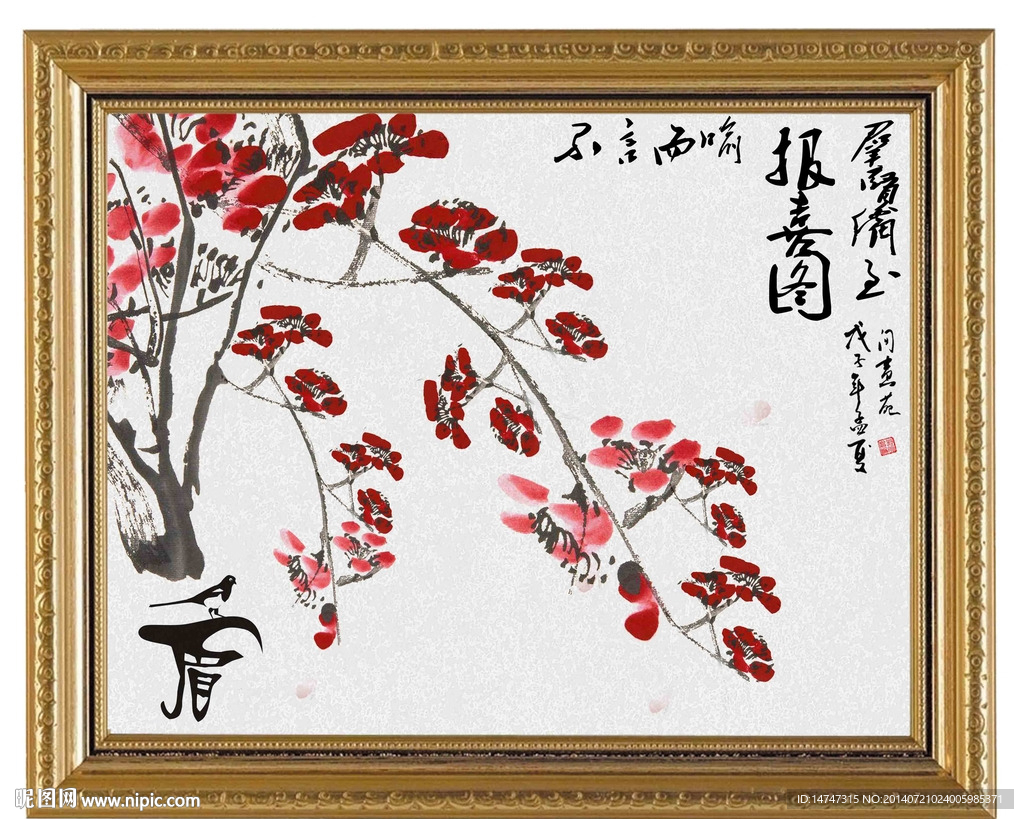 群贤备至
问意左
戊子年孟夏
报喜图
不言而喻
眉
昵图网 www.nipic.com
ID:14747315 NO:20140721024005985371